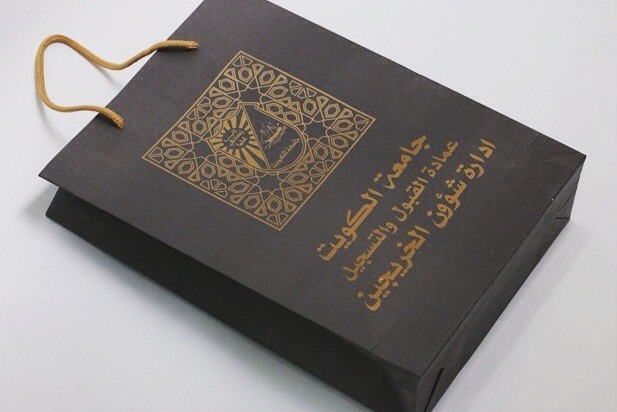 جامعة الكويت
عمادة القبول والتسجيل
ادارة شؤون الخريجين